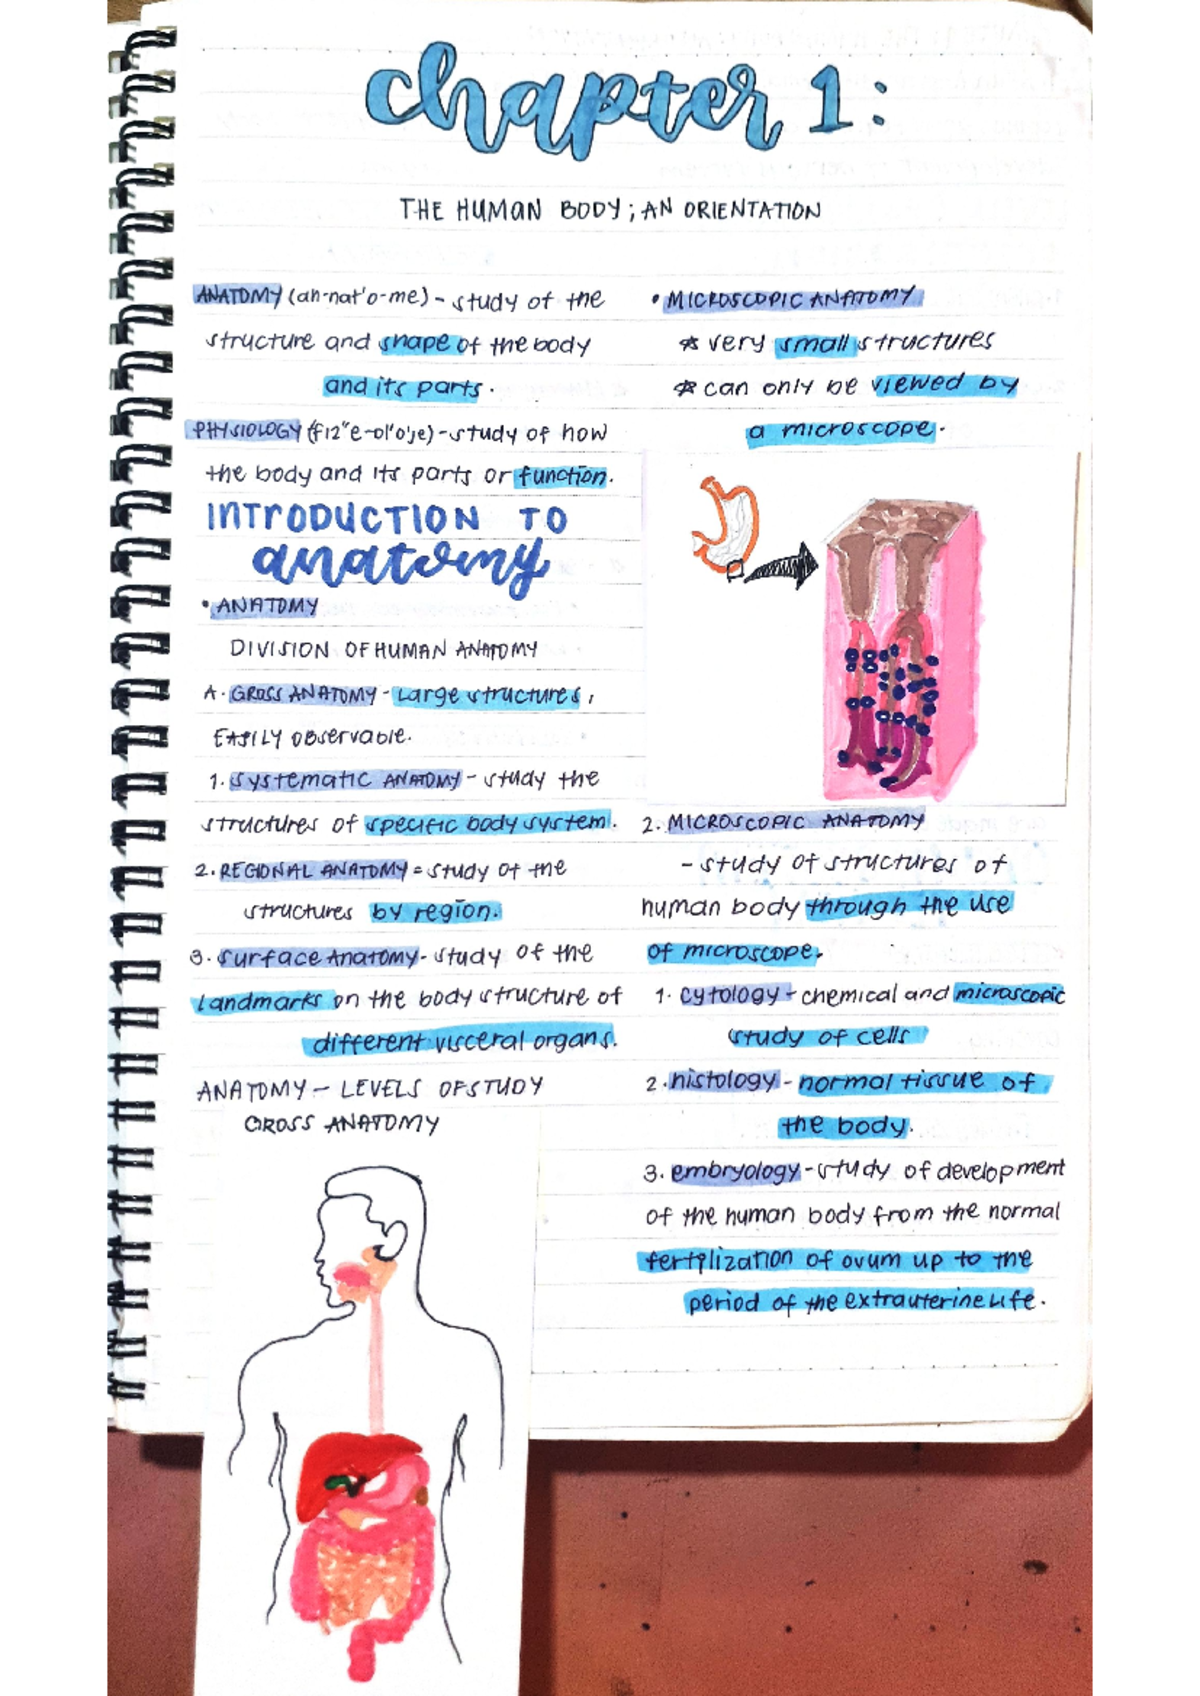 chapter 1:
THE HUMAN BODY; AN ORIENTATION
ANATOMY (ah-nat'o-me) - study of the
structure and shape of the body
and its parts.
PHYSIOLOGY (fiz"e-ol'o'je) - study of how
the body and its parts or function.
INTRODUCTION TO
anatomy
• ANATOMY
DIVISION OF HUMAN ANATOMY
A. GROSS ANATOMY - Large structures,
EASILY Observable.
1. systematic ANATOMY - study the
structures of specific body system.
2. REGIONAL ANATOMY = study of the
structures by region.
3. surface Anatomy - study of the
landmarks on the body structure of
different visceral organs.
ANATOMY - LEVELS OF STUDY
GROSS ANATOMY
• MICROSCOPIC ANATOMY
* very small structures
* can only be viewed by
a microscope.
2. MICROSCOPIC ANATOMY
- study of structures of
human body through the use
of microscope.
1. cytology - chemical and microscopic
study of cells
2. histology - normal tissue of
the body.
3. embryology - study of development
of the human body from the normal
fertilization of ovum up to the
period of the extrauterine life.